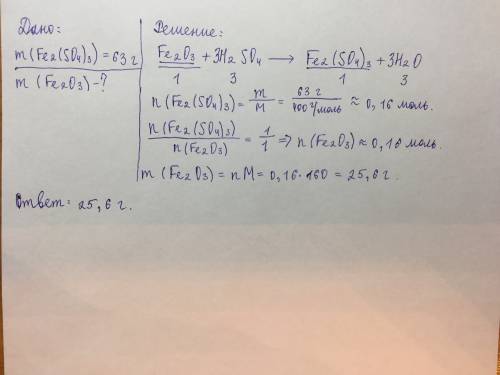 Дано:
m(Fe₂(SO₄)₃) = 63 г
m (Fe₂O₃) - ?
Решение:
Fe₂O₃ + 3H₂SO₄ ⟶ Fe₂(SO₄)₃ + 3H₂O
1 3 1 3
n(Fe₂(SO₄)₃) = m/M = 63 г/400 г/моль ≈ 0,16 моль.
n(Fe₂(SO₄)₃)/n(Fe₂O₃) = 1/1 ⇒ n(Fe₂O₃) ≈ 0,16 моль.
m (Fe₂O₃) = nM = 0,16·160 = 25,6 г.
Ответ: 25,6 г.